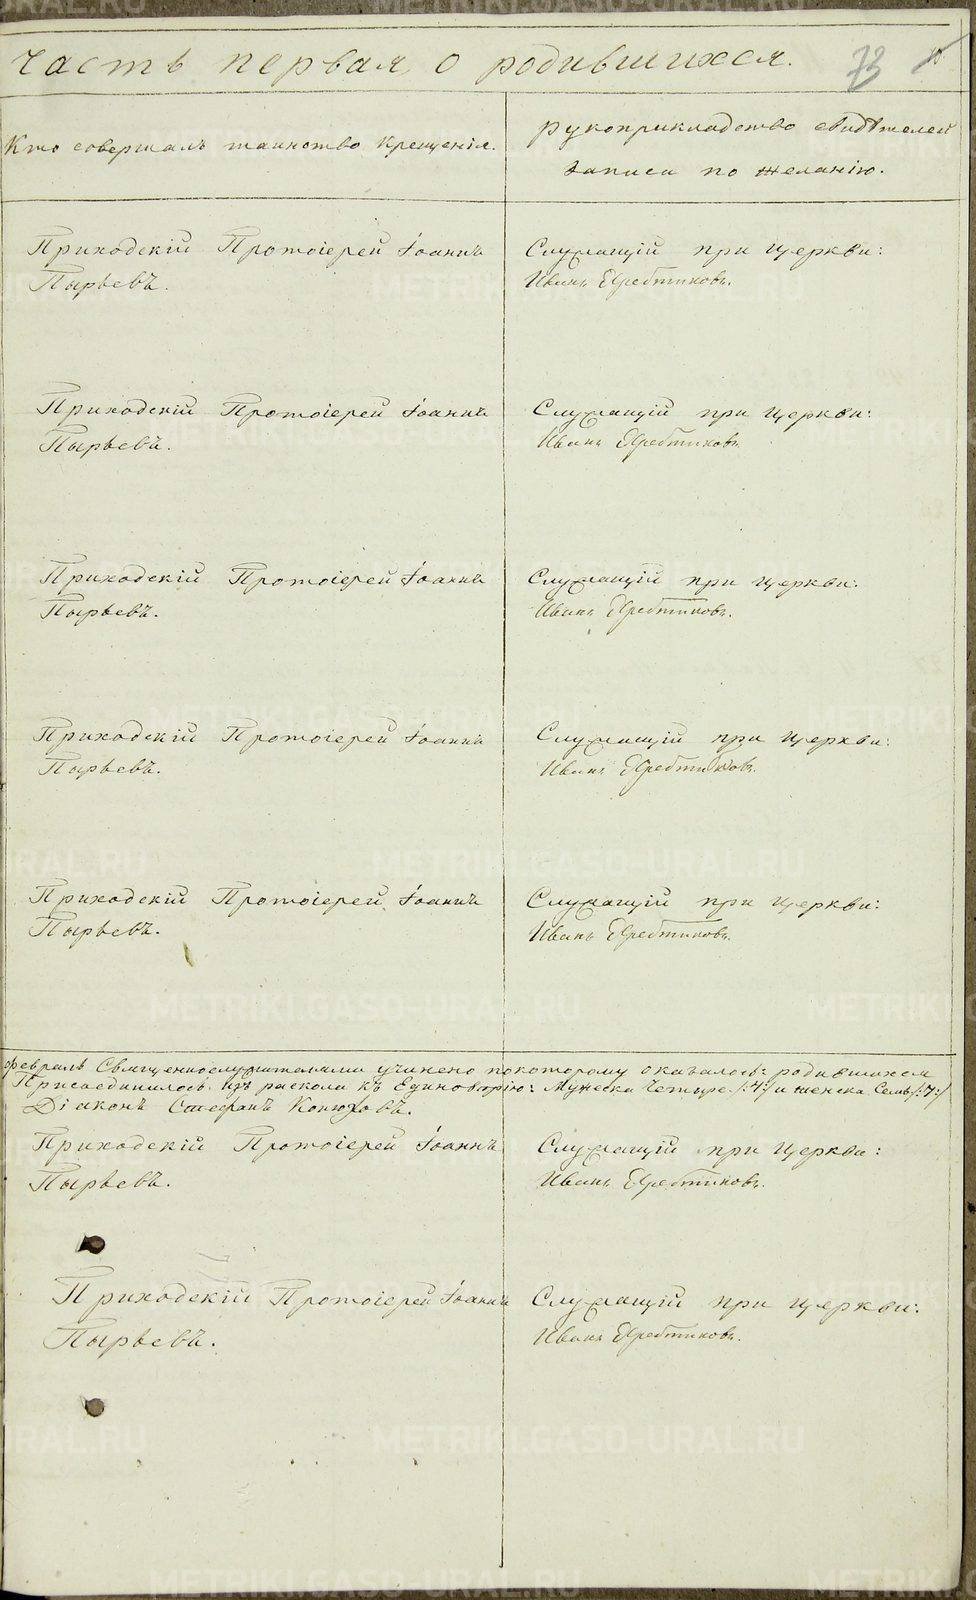 Часть первая о родившихся.
73
Кто совершалъ таинство крещенія.
Рукоприкладство свидѣтелей
записи по желанію.
Приходскій Протоіерей Іоаннъ
Пырьевъ.
Служащій при церкви:
Иванъ
Приходскій Протоіерей Іоаннъ
Пырьевъ.
Служащій при церкви:
Иванъ
Приходскій Протоіерей Іоаннъ
Пырьевъ.
Служащій при церкви:
Иванъ
Приходскій Протоіерей Іоаннъ
Пырьевъ.
Служащій при церкви:
Иванъ
Приходскій Протоіерей Іоаннъ
Пырьевъ.
Служащій при церкви:
Иванъ
февраль Священнослужителями учинено по которому оказалось: родившихся
Присоединилось изъ раскола къ Единовѣрію: Мужеска Четыре /:4:/ и женска Семь /:7:/
Діаконъ Стефанъ Конюховъ.
Приходскій Протоіерей Іоаннъ
Пырьевъ.
Служащій при церкви:
Иванъ
Приходскій Протоіерей Іоаннъ
Пырьевъ.
Служащій при церкви:
Иванъ
METRIKI.GASO-URAL.RU